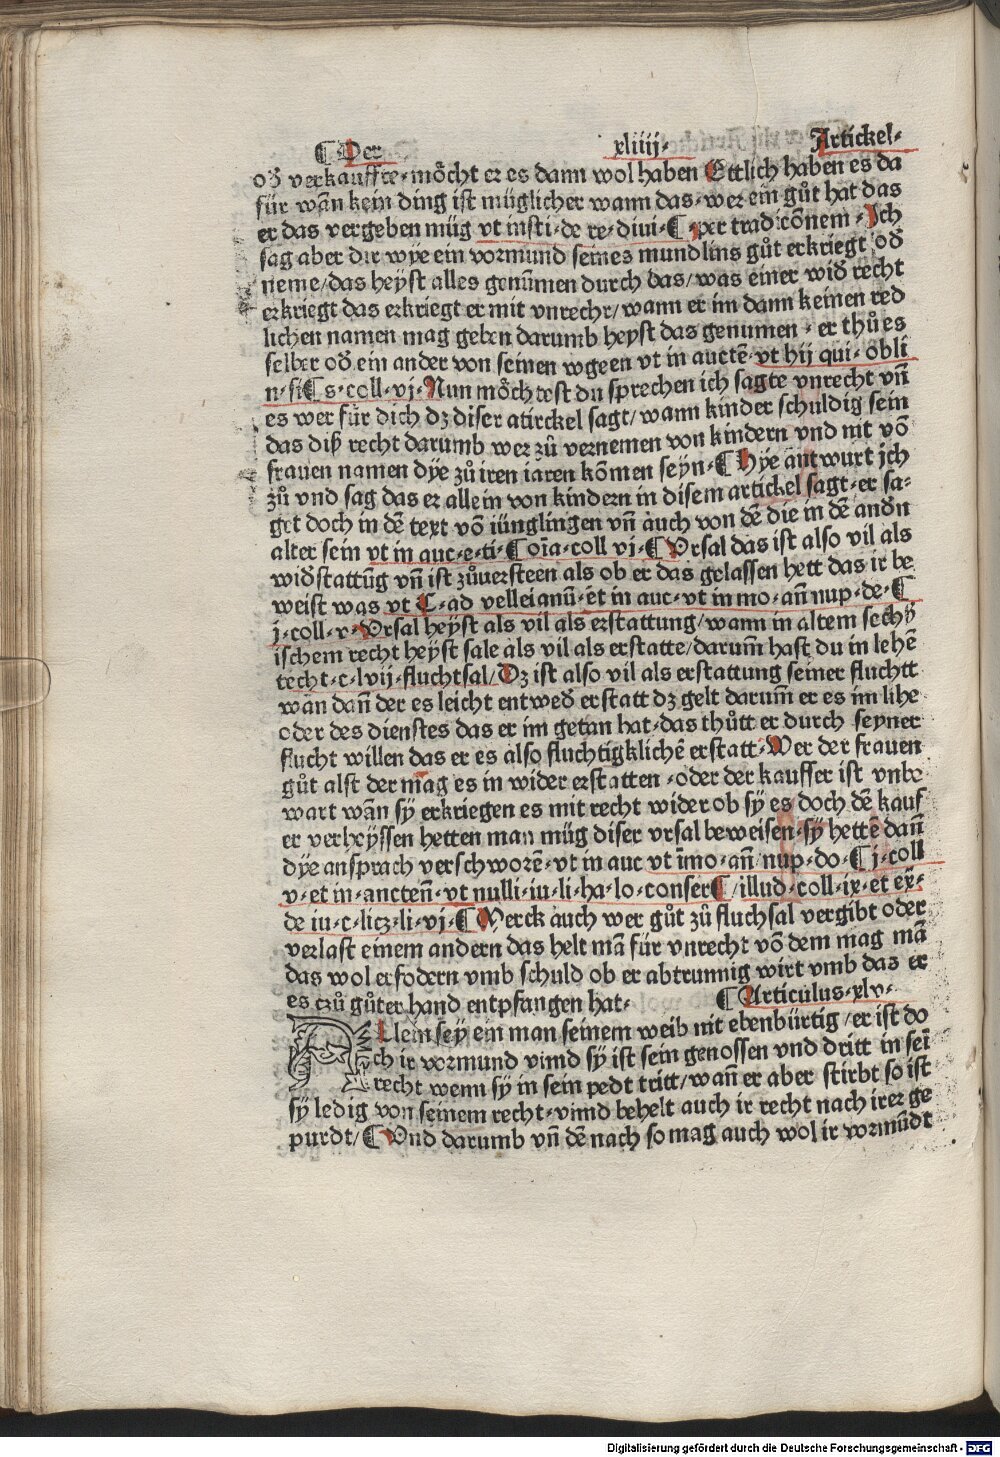 ¶ Der xliiij· Artickel·
od̄ verkauffte· mo᷑cht er es dann wol haben Ettlich haben es da
für wān kein ding ist müglicher wann das· wer ein gůt hat das
er das vergeben müg vt insti·de re·diui·¶ ·per tradicōnem· Ich
sag aber dir wye ein vormund seines mundlins gůt erkriegt od̄
neme/das heyst alles genūmen durch das/was einer wid̄ recht
erkriegt das erkriegt er mit vnrecht/wann er im dann keinen red
lichen namen mag geben darumb heyst das genumen· er thůt es
selber od̄ ein ander von seinen wgeen vt in auctē·vt hij qui·obli
n·si¶ s·coll·vj·Nun möchtest du sprechen ich sagte vnrecht vn̄
es wer für dich dz diser atirckel sagt/wann kinder schuldig sein
das diß recht darumb wer zů vernemen von kindern vnd nit vō
frauen namen dye zů iren iaren kōmen seyn·¶ Hye antwurt jch
zů vnd sag das er allein von kindern in disem artickel sagt·er sa-
get doch in dē text vō iünglingen vn̄ auch von dē die in dē and̄n
alter sein vt in auc·e·ti·¶ oīa·coll vj·¶ Vrsal das ist also vil als
wid̄stattūg vn̄ ist zůuersteen als ob er das gelassen hett das ir be
weist was vt C·ad velleianū·et in auc·vt in mo·an̄ nup·de·¶
j·coll·v·Vrsal heyst als vil als erstattung/wann in altem sechß
ischem recht heyst sale als vil als erstatte/darum̄ hast du in lehē
techt·c·lvij·fluchtsal/Dz ist also vil als erstattung seiner fluchtt
wān dan̄ der es leicht entwed̄ erstatt dz gelt darum̄ er es im lihe
oder des dienstes das er im getan hat·das thůtt er durch seyner
flucht willen das er es also fluchtigklichē erstatt·Wer der frauen
gůt alst der mag es in wider erstatten·oder der kauffer ist vnbe
wart wān sÿ erkriegen es mit recht wider ob sÿ es doch dē kauf
er verheyssen hetten man müg diser vrsal beweisen·sÿ hettē dan̄
dÿe ansprach verschworē·vt in auc vt īmo·an̄ nup·do·¶ j·coll
v·et in·ancten̄·vt nulli·iu·li·ha·lo·conser¶/illud·coll·ix·et ex̄·
de iu·c·licz·li·vj·¶ Merck auch wer gůt zů fluchsal vergibt oder
verlast einem andern das helt mā für vnrecht vō dem mag mā
das wol erfodern vmb schuld ob er abtrunnig wirt vmb daz er
es czů gůter hand entpfangen hat· ¶ Articulus·xlv·
Allein sey ein man seinem weib nit ebenbürtig/er ist do
ch ir vormund vnnd sÿ ist sein genossen vnd dritt in seī
recht wenn sÿ in sein pedt tritt/wan̄ er aber stirbt so ist
sÿ ledig von seinem recht·vnnd behelt auch ir recht nach irer ge
purdt/¶ Vnd darumb vn̄ dē nach so mag auch wol ir vormūdt
Digitalisierung gefördert durch die Deutsche Forschungsgemeinschaft - DFG